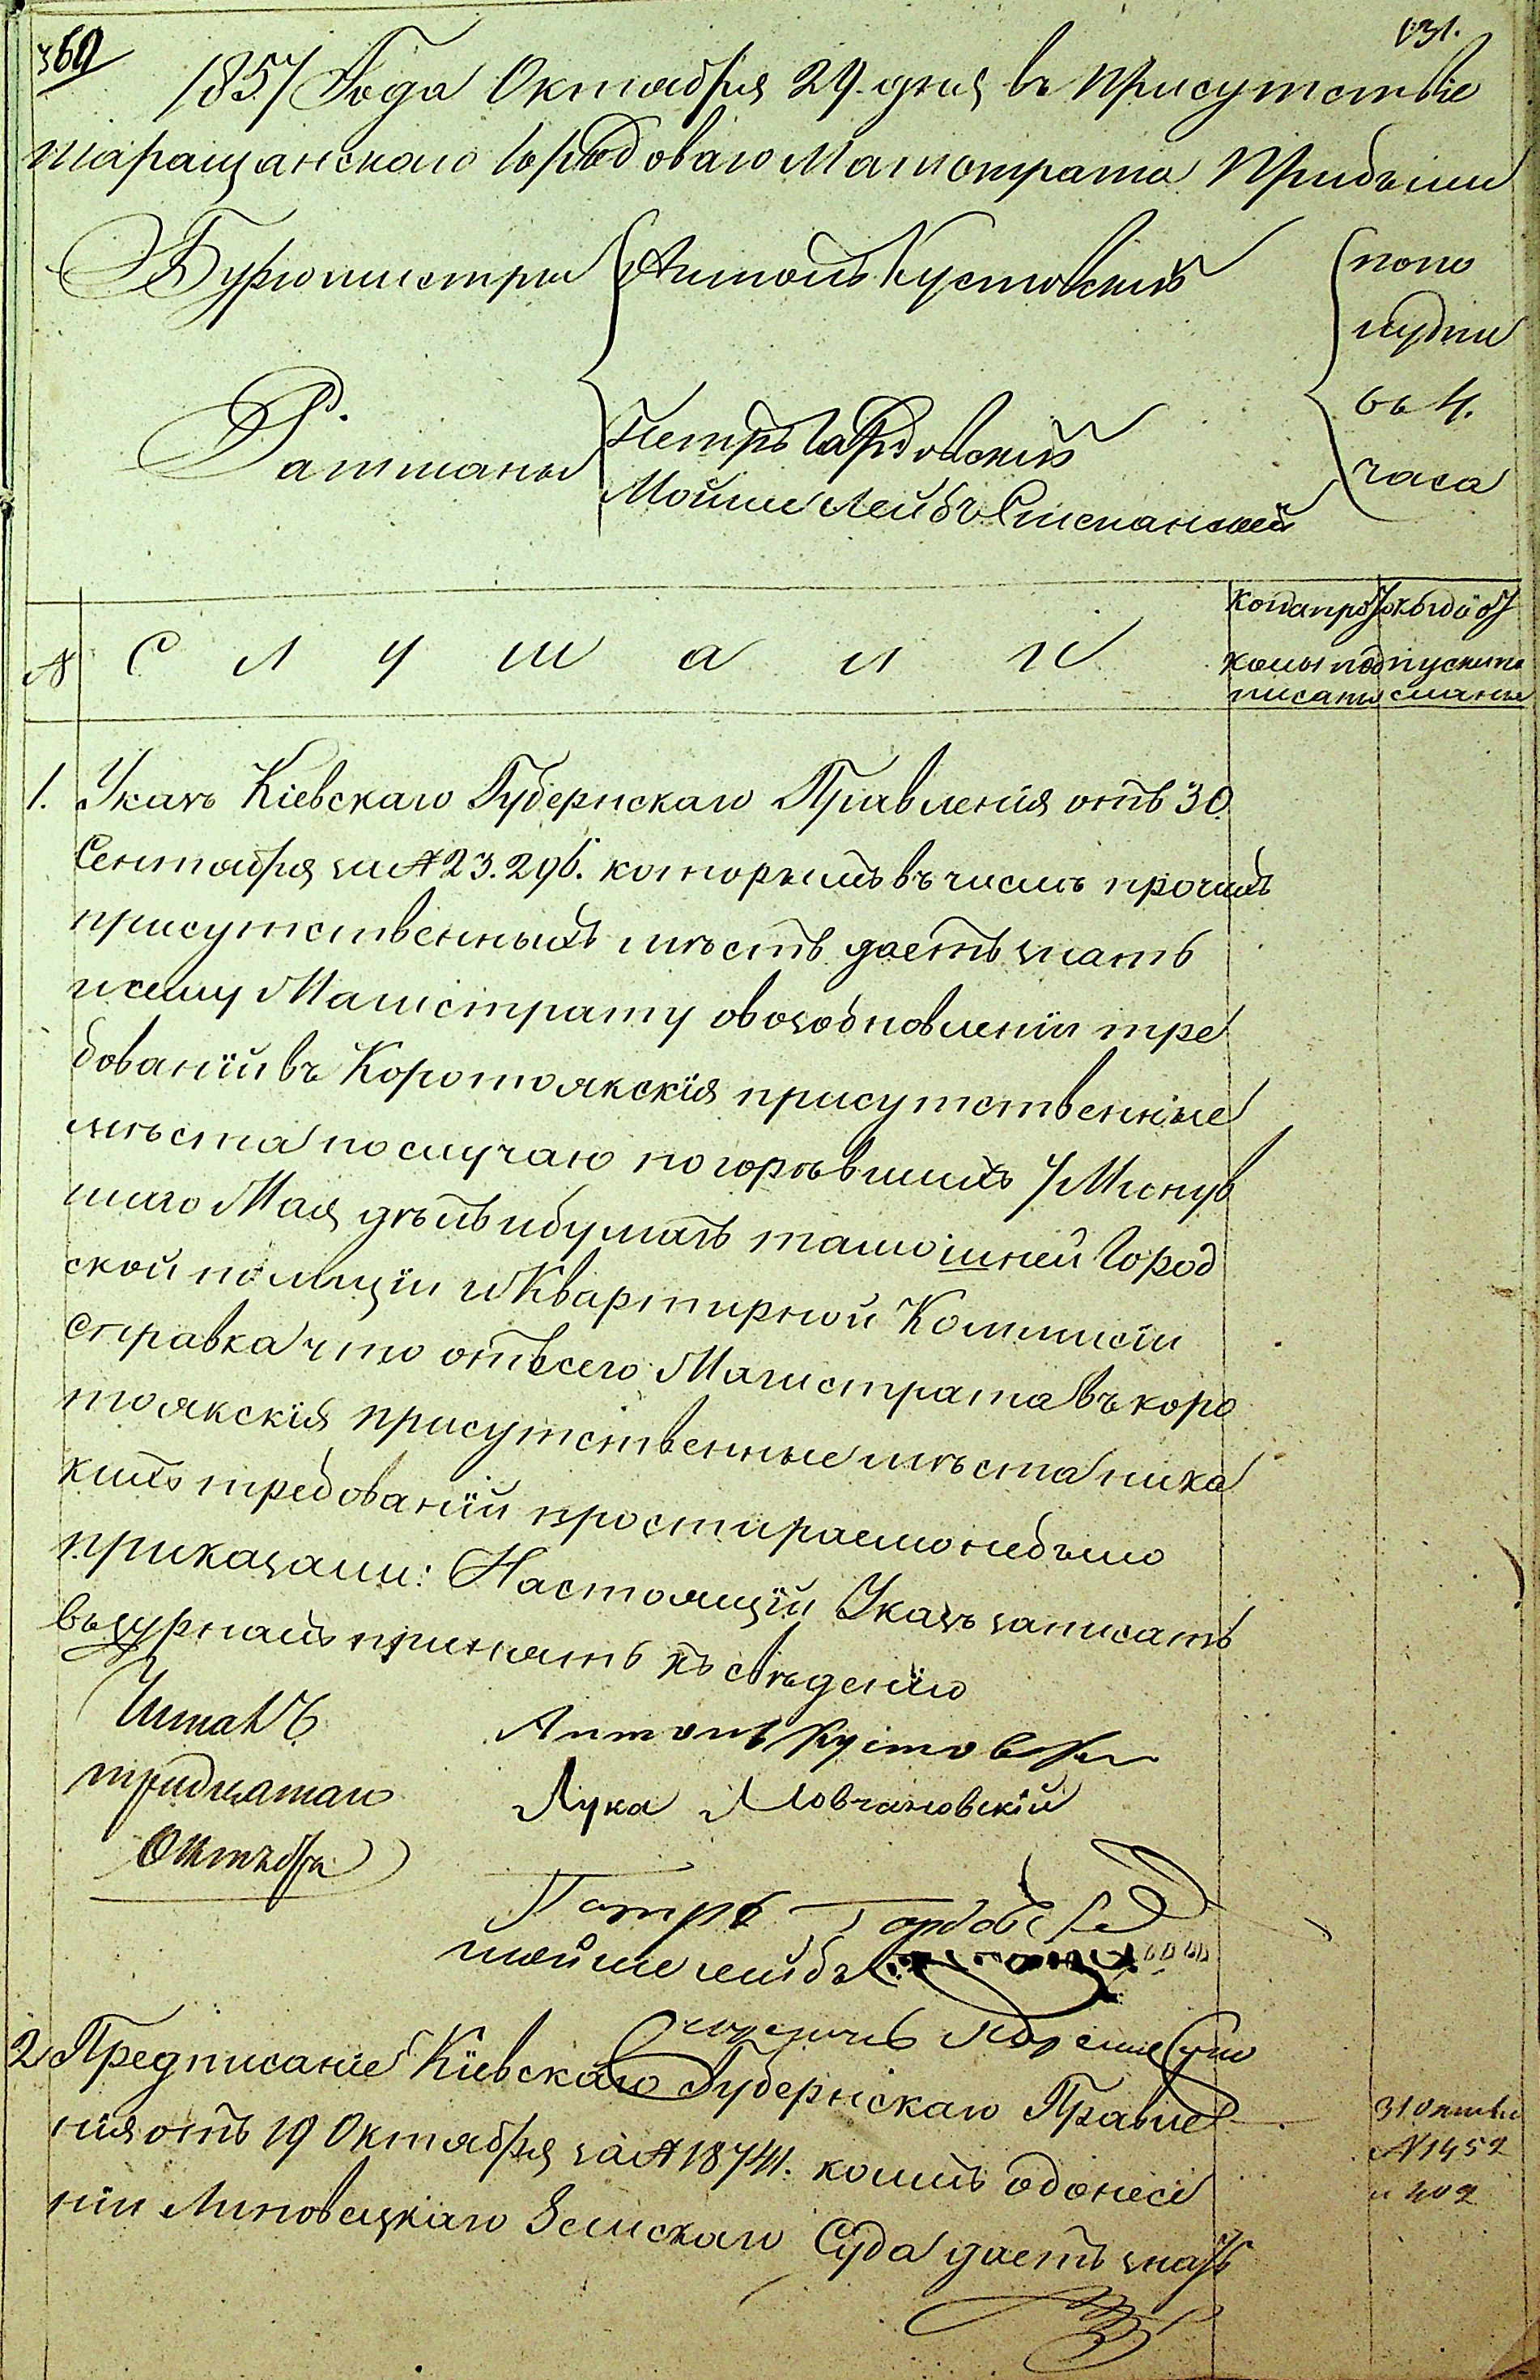 360
131.
1857 Года Октября 29. дня въ Присутствіе
Таращанского Городоваго Магистрата Прибыли
Бургомистры Антонъ Кустовскій
попо
лудни
въ 4.
часа
Ратманы
Петръ Гордовскій
Мойше Лейбъ
№ С л у ш а л и
Когда про
колы под
писаны
пуск
1. Указъ Кіевскаго Губернскаго Правленія отъ 30
Сентября за № 23.296. которымъ въ числѣ прочихъ
присутственныхъ мѣстъ даетъ знать
и сему Магистрату о возобновленіи тре
бованій въ Коротоякскія присутственные
мѣста по случаю погорѣвшихъ 7 Минув
шаго Мая дѣлъ и бумагъ тамошней Город
ской полиціи и Квартирной Коммисіи
Справка что отъ сего Магистрата въ коро
тоякскія присутственные мѣста ника
кихъ требованій простираемо небыло
приказали: Настоящій Указъ записать
въ журналъ принять къ свѣденію
Читалъ
тридцатаго
Октября
Антонъ Кустовскі
Лука Мовчановскій
Петръ
мойше лейбъ
2. Предписаніе Кіевскаго Губернскаго Правле
нія отъ 19 Октября за № 18741. коимъ о донесе
ніи Липовецкаго Земскаго Суда даетъ знать
31 Октяб
№ 1452
и 402